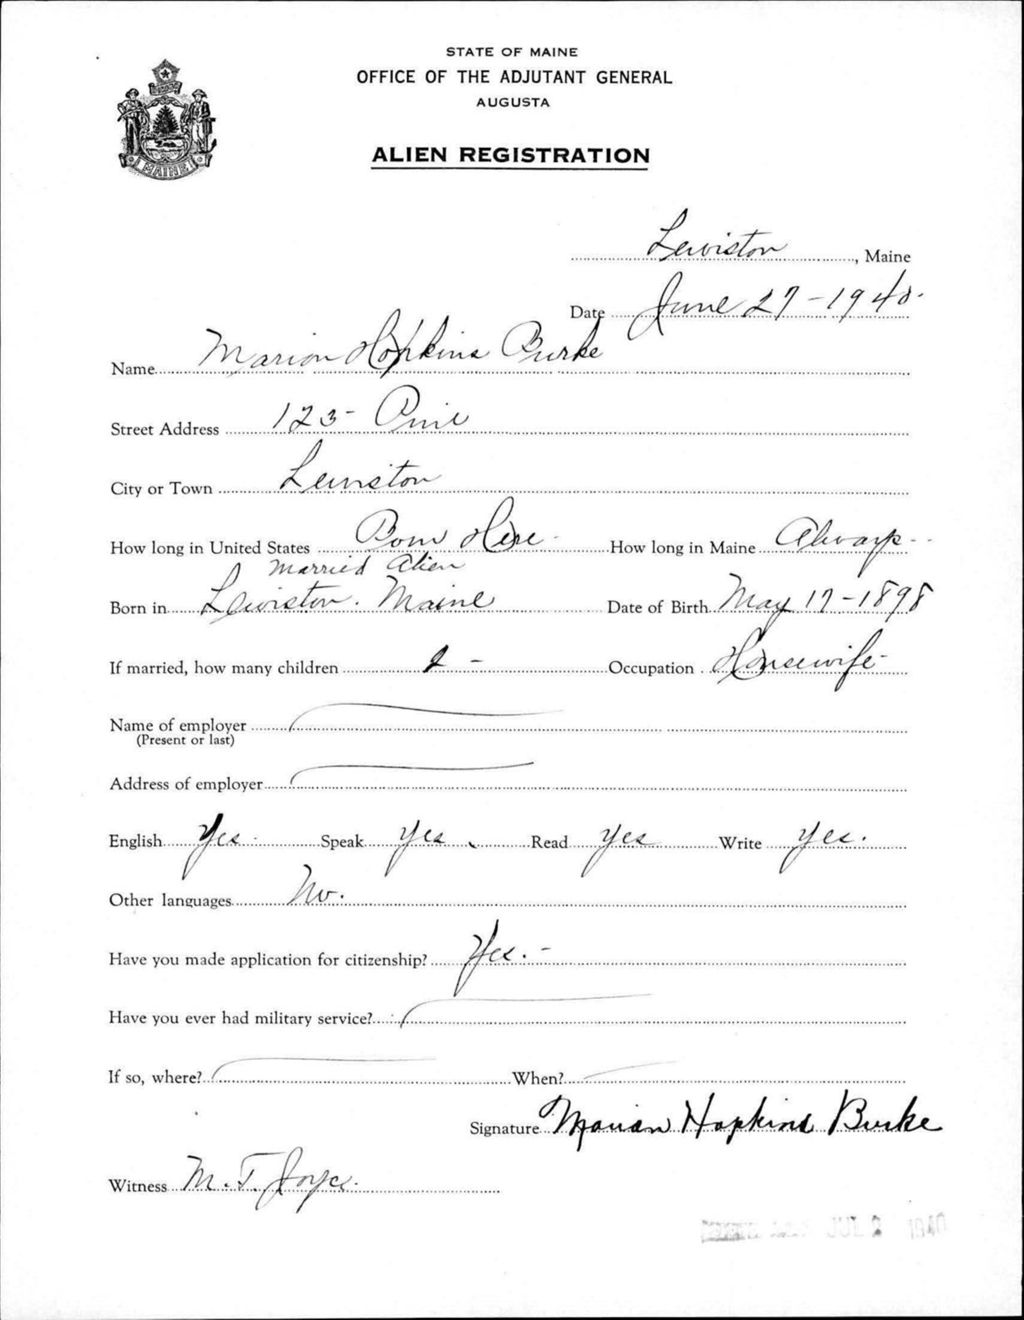 STATE OF MAINE
OFFICE OF THE ADJUTANT GENERAL
AUGUSTA
ALIEN REGISTRATION
MAINE
Lewiston, Maine
Date June 27-1940.
Name Marion Hopkins Burke
Street Address 123- Pine
City or Town Lewiston
How long in United States Born Here - How long in Maine Always--
Married Alien
Born in Lewiston. Maine Date of Birth May 17-1898
If married, how many children 2 - Occupation Housewife-
Name of employer
(Present or last)
Address of employer
English Yes - Speak Yes Read Yes Write Yes.
Other languages No.
Have you made application for citizenship? Yes. -
Have you ever had military service?
If so, where? When?
Signature Marion Hopkins Burke
Witness M. T. Joyce.
JUL 2 1940